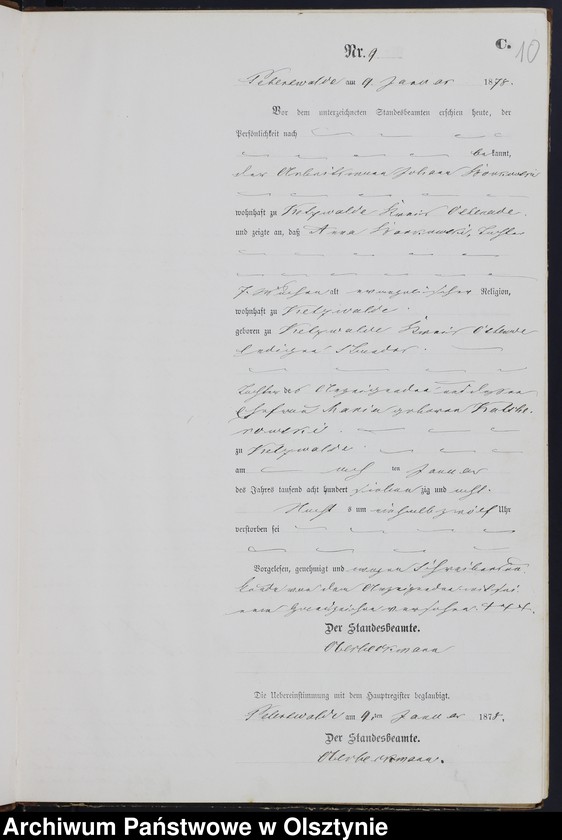 C. 10
Nr. 9
Peterswalde am 9. Januar 1878.
Vor dem unterzeichneten Standesbeamten erschien heute, der
Persönlichkeit nach
bekannt,
der Arbeitsmann Johann
wohnhaft zu Kreis Osterode.
und zeigte an, daß Anna Tochter
7 Wochen alt evangelischer Religion,
wohnhaft zu
geboren zu Kreis Osterode
ledigen Standes.
Tochter des Anzeigenden und dessen
Ehefrau Maria geborene
zu
am ten Januar
des Jahres tausend acht hundert siebenzig und acht.
Nachts um einhalb zwölf Uhr
verstorben sei
Vorgelesen, genehmigt und wegen Schreibens
von dem Anzeigenden mit sei
nem Handzeichen versehen. + + +.
Der Standesbeamte.
Oberbeckmann
Die Uebereinstimmung mit dem Hauptregister beglaubigt.
Peterswalde am 9. ten Januar 1878.
Der Standesbeamte.
Oberbeckmann.
Archiwum Państwowe w Olsztynie